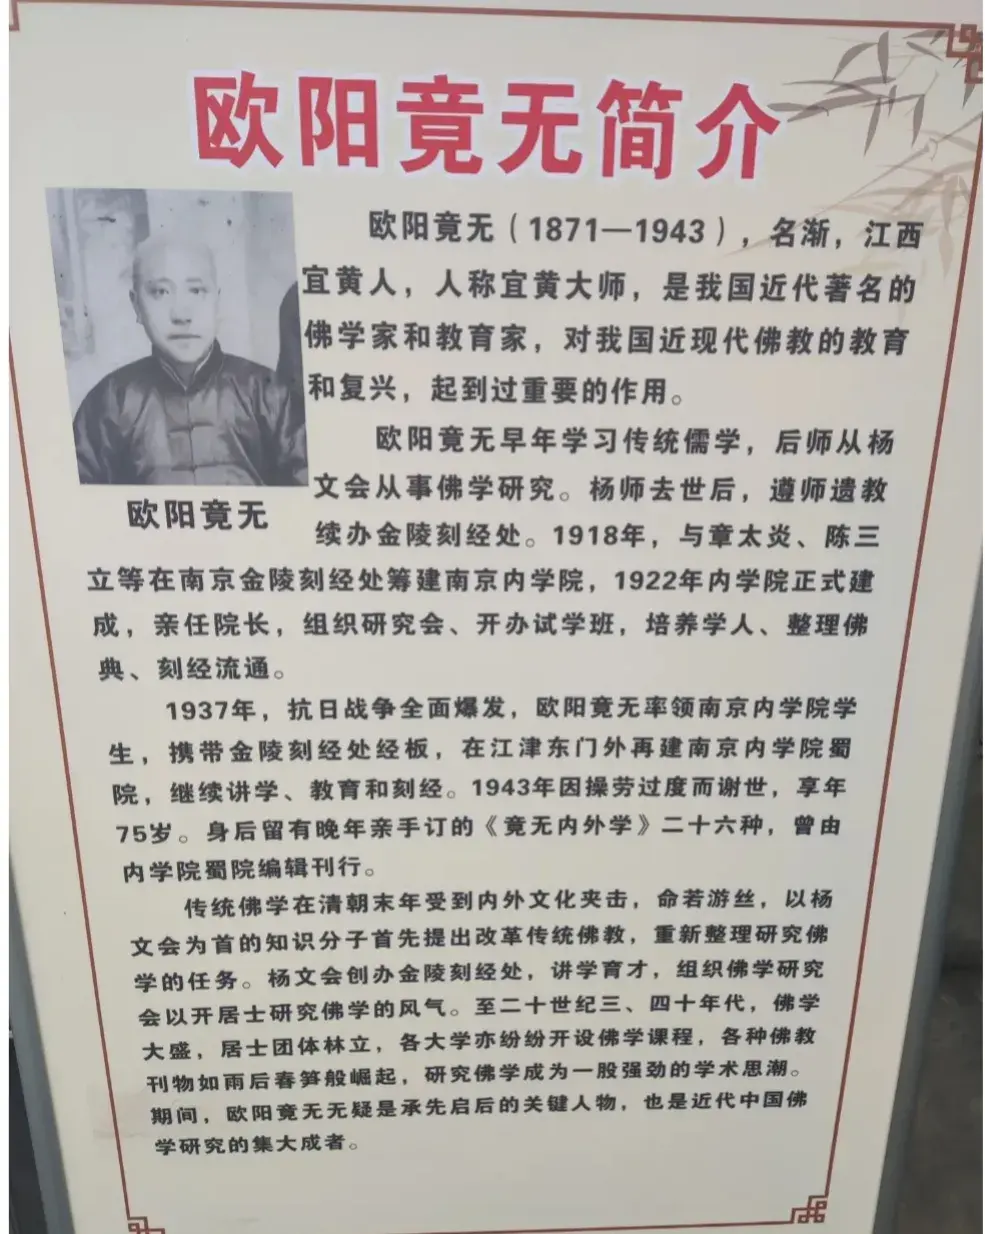 欧阳竟无简介
欧阳竟无（1871—1943），名渐，江西
宜黄人，人称宜黄大师，是我国近代著名的
佛学家和教育家，对我国近现代佛教的教育
和复兴，起到过重要的作用。
欧阳竟无
欧阳竟无早年学习传统儒学，后师从杨
文会从事佛学研究。杨师去世后，遵师遗教
续办金陵刻经处。1918年，与章太炎、陈三
立等在南京金陵刻经处筹建南京内学院，1922年内学院正式建
成，亲任院长，组织研究会、开办试学班，培养学人、整理佛
典、刻经流通。
1937年，抗日战争全面爆发，欧阳竟无率领南京内学院学
生，携带金陵刻经处经板，在江津东门外再建南京内学院蜀
院，继续讲学、教育和刻经。1943年因操劳过度而谢世，享年
75岁。身后留有晚年亲手订的《竟无内外学》二十六种，曾由
内学院蜀院编辑刊行。
传统佛学在清朝末年受到内外文化夹击，命若游丝，以杨
文会为首的知识分子首先提出改革传统佛教，重新整理研究佛
学的任务。杨文会创办金陵刻经处，讲学育才，组织佛学研究
会以开居士研究佛学的风气。至二十世纪三、四十年代，佛学
大盛，居士团体林立，各大学亦纷纷开设佛学课程，各种佛教
刊物如雨后春笋般崛起，研究佛学成为一股强劲的学术思潮。
期间，欧阳竟无无疑是承先启后的关键人物，也是近代中国佛
学研究的集大成者。